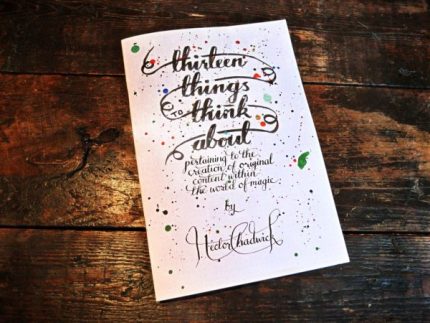 thirteen
things
TO think
about
pertaining to the
creation of original
content within
the world of magic
by
Hector Chadwick